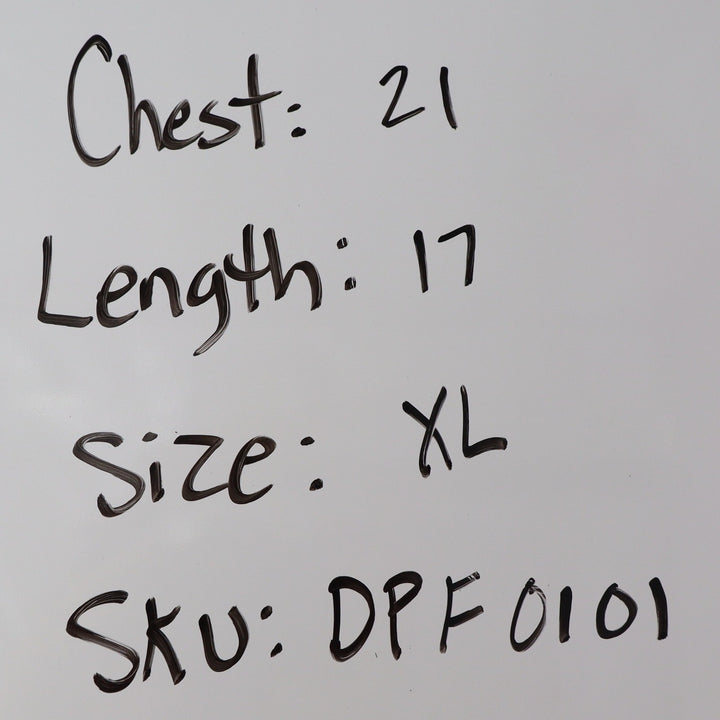 Chest: 21
Length: 17
Size: XL
SKU: DPF0101